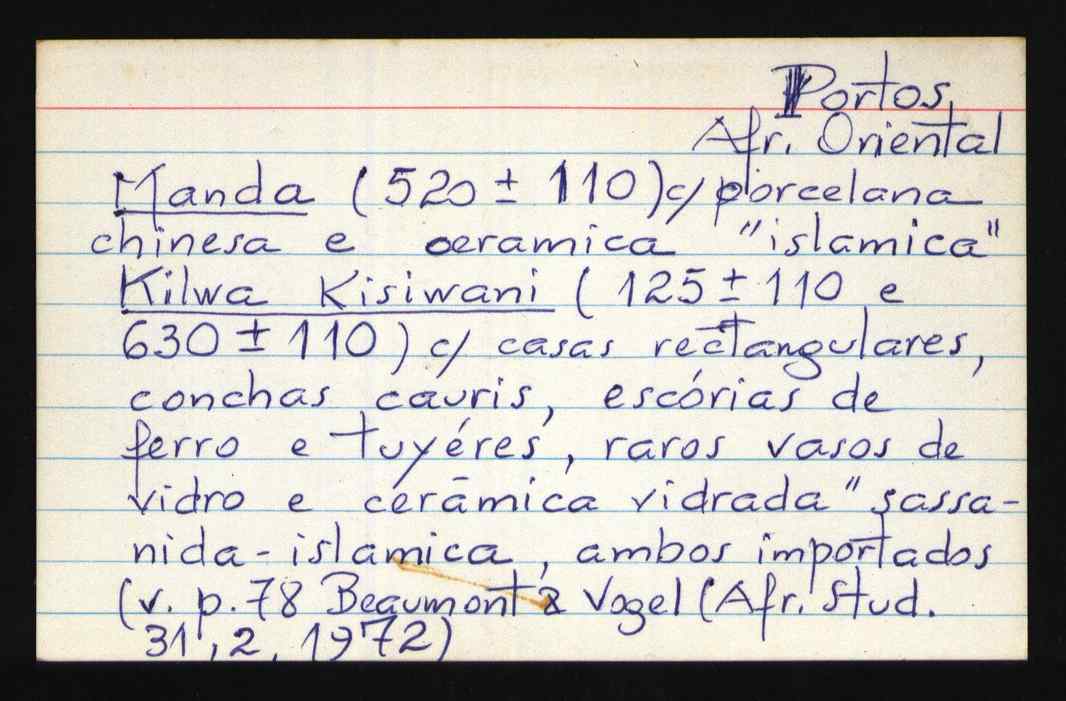 Portos
Afr. Oriental
Manda (520 ± 110) c/ porcelana
chinesa e ceramica "islamica"
Kilwa Kisiwani (125 ± 110 e
630 ± 110) c/ casas rectangulares,
conchas cauris, escórias de
ferro e tuyéres, raros vasos de
vidro e cerâmica vidrada "sassa-
nida-islamica, ambos importados
(v. p. 78 Beaumont & Vogel (Afr. Stud.
31, 2, 1972)